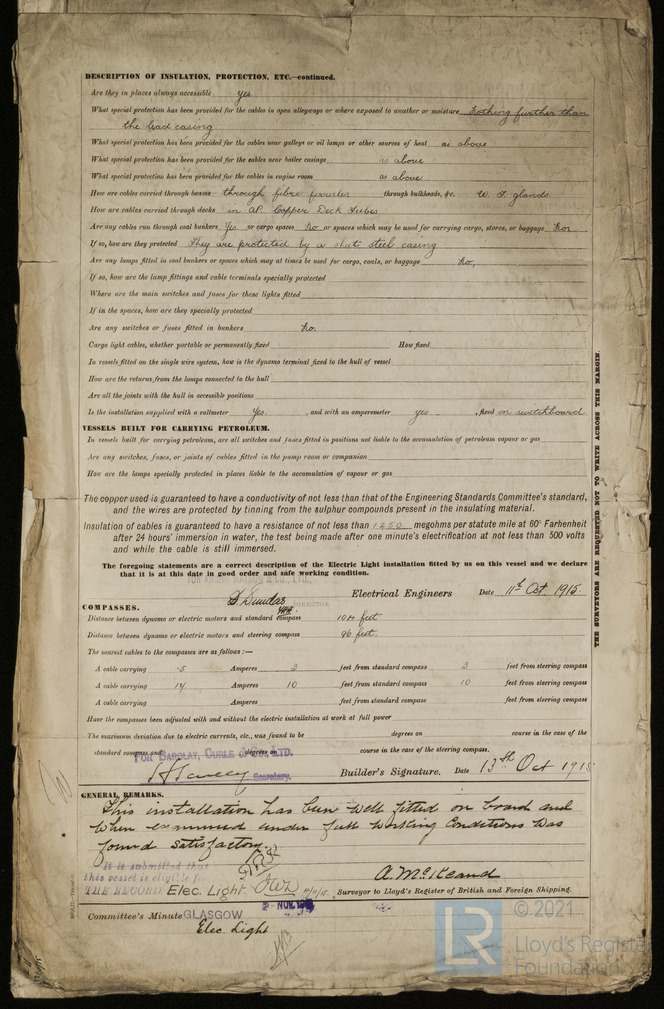 DESCRIPTION OF INSULATION, PROTECTION, ETC.—continued.
Are they in places always accessible yes
What special protection has been provided for the cables in open alleyways or where exposed to weather or moisture Nothing further than
the lead casing
What special protection has been provided for the cables near galleys or oil lamps or other sources of heat as above
What special protection has been provided for the cables near boiler casings as above
What special protection has been provided for the cables in engine room as above
How are cables carried through beams through fibre ferrules through bulkheads, &c. W. T. glands
How are cables carried through decks in Copper Deck Tubes
Are any cables run through coal bunkers Yes or cargo spaces No or spaces which may be used for carrying cargo, stores, or baggage
If so, how are they protected They are protected by a steel casing
Are any lamps fitted in coal bunkers or spaces which may at times be used for cargo, coals, or baggage No,
If so, how are the lamp fittings and cable terminals specially protected
Where are the main switches and fuses for these lights fitted
If in the spaces, how are they specially protected
Are any switches or fuses fitted in bunkers No.
Cargo light cables, whether portable or permanently fixed How fixed
In vessels fitted on the single wire system, how is the dynamo terminal fixed to the hull of vessel
How are the returns from the lamps connected to the hull
Are all the joints with the hull in accessible positions
Is the installation supplied with a voltmeter Yes. , and with an amperemeter yes , fixed on switchboard
VESSELS BUILT FOR CARRYING PETROLEUM.
In vessels built for carrying petroleum, are all switches and fuses fitted in positions not liable to the accumulation of petroleum vapour or gas
Are any switches, fuses, or joints of cables fitted in the pump room or companion
How are the lamps specially protected in places liable to the accumulation of vapour or gas
The copper used is guaranteed to have a conductivity of not less than that of the Engineering Standards Committee's standard,
and the wires are protected by tinning from the sulphur compounds present in the insulating material.
Insulation of cables is guaranteed to have a resistance of not less than 1250 megohms per statute mile at 60° Farhenheit
after 24 hours' immersion in water, the test being made after one minute's electrification at not less than 500 volts
and while the cable is still immersed.
The foregoing statements are a correct description of the Electric Light installation fitted by us on this vessel and we declare
that it is at this date in good order and safe working condition.
D Dundas DIRECTOR Electrical Engineers Date 11th Oct 1915
COMPASSES.
Distance between dynamo or electric motors and standard compass 104 feet
Distance between dynamo or electric motors and steering compass 96 feet
The nearest cables to the compasses are as follows:—
A cable carrying .5 Amperes 3 feet from standard compass 3 feet from steering compass
A cable carrying 14 Amperes 10 feet from standard compass 10 feet from steering compass
A cable carrying Amperes feet from standard compass feet from steering compass
Have the compasses been adjusted with and without the electric installation at work at full power
The maximum deviation due to electric currents, etc., was found to be degrees on course in the case of the
standard compass and degrees on course in the case of the steering compass.
FOR BARCLAY, CURLE & CO., LTD.
Secretary. Builder's Signature. Date 13th Oct 1915
GENERAL REMARKS.
This installation has been well fitted on board and
when examined under full working conditions was
found satisfactory.
It is submitted that
this vessel is eligible for
THE RECORD Elec. Light.
A. McKeand
Surveyor to Lloyd's Register of British and Foreign Shipping.
Committee's Minute GLASGOW
Elec. Light
THE SURVEYORS ARE REQUESTED NOT TO WRITE ACROSS THIS MARGIN.
LR © 2021
Lloyd's Register
Foundation